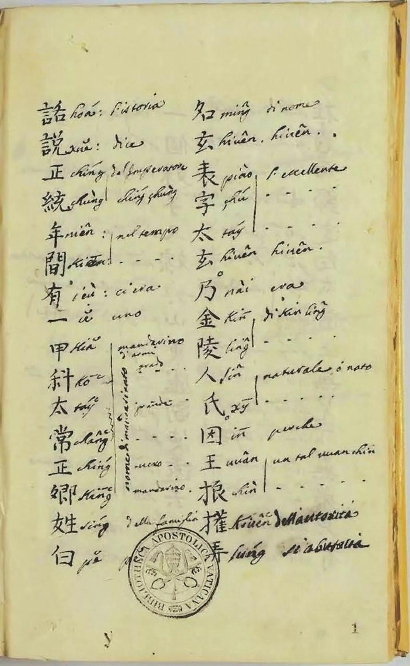 話 hoá: l'istoria
説 xuě: dice
正 chíng dell'Imperatore
統 thùng chíng thùng
年 niên: nel tempo
間 Kiēn:
有 ièu: ci era
一 iě uno
甲 Kiǎ mandarino
科 Kō grado
太 táy grande
常 chāng
正 chíng vero
卿 King mandarino
姓 síng della famiglia
白 pě
名 mîng di nome
玄 hiuên. hiuên.
表 piào l'eccellente
字 çhú
太 táy
玄 hiuên hiuên.
乃 nài era
金 Kīn di Kin lîng
陵 lîng
人 jîn naturale, ò nato
氏 xý
因 īn perche
王 uuân un tal uuan chin
振 chín
攉 Kiuên dell'autorità
弄 lúng si abusaua
BIBLIOTHECA APOSTOLICA VATICANA
1